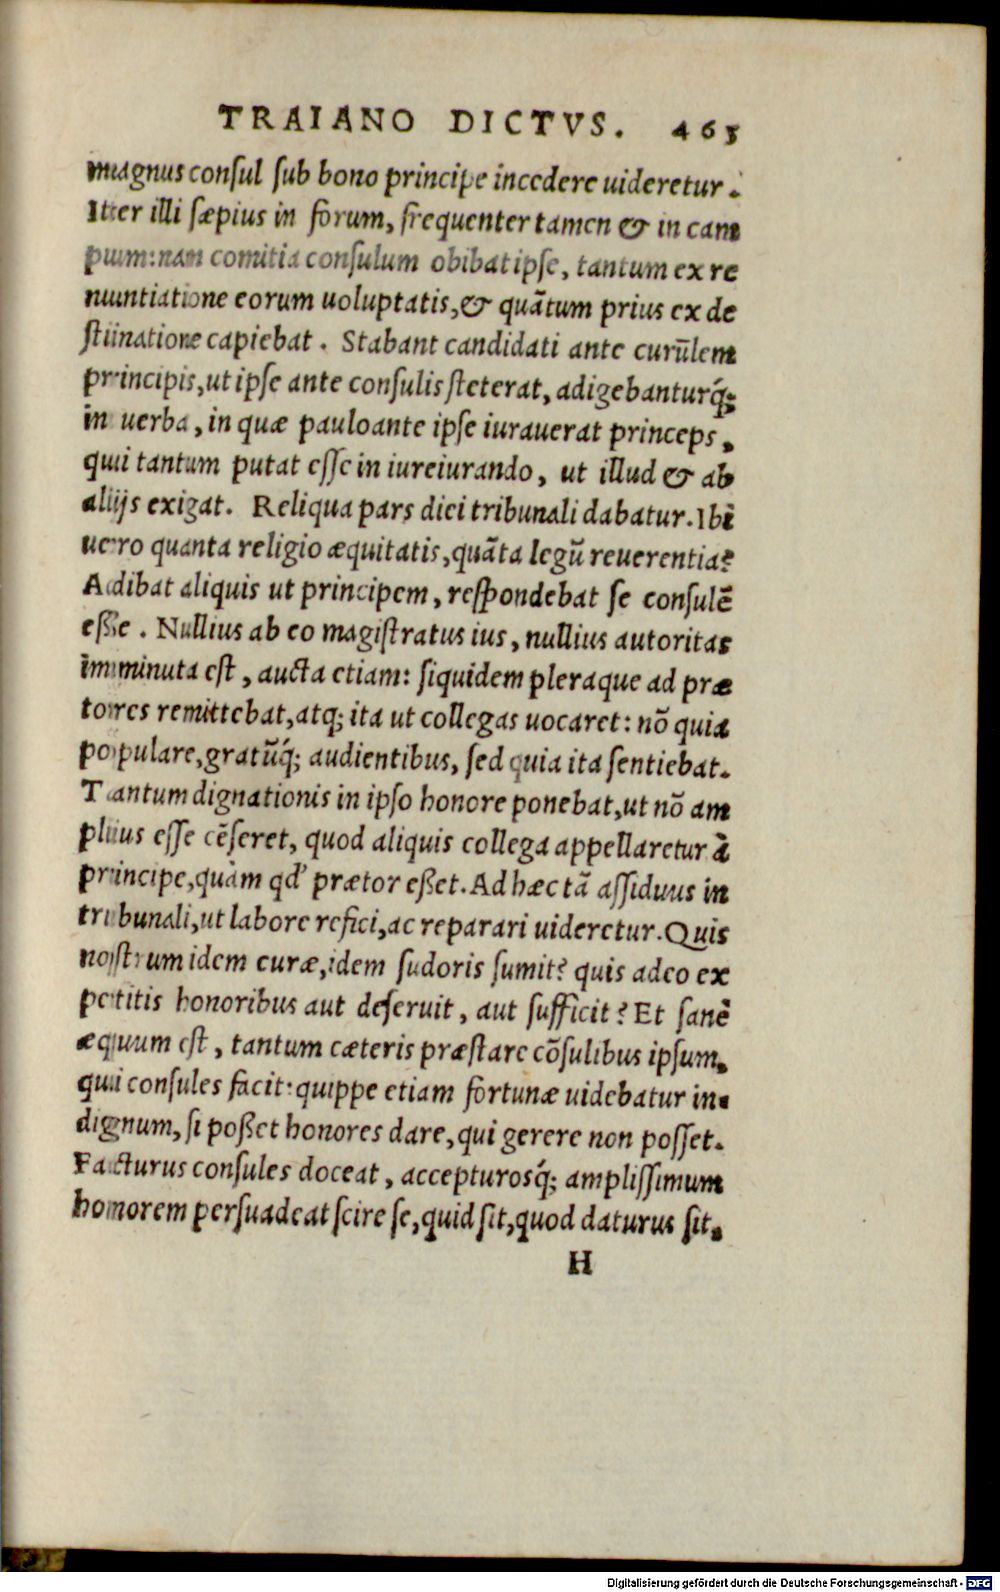 TRAIANO DICTVS. 465
magnus consul sub bono principe incedere uideretur.
Iter illi sæpius in forum, frequenter tamen & in cam
pum: nam comitia consulum obibat ipse, tantum ex re
nuntiatione eorum uoluptatis, & quãtum prius ex de
stinatione capiebat. Stabant candidati ante curũlem
principis, ut ipse ante consulis steterat, adigebanturq́;
in uerba, in quæ pauloante ipse iurauerat princeps,
qui tantum putat esse in iureiurando, ut illud & ab
alijs exigat. Reliqua pars diei tribunali dabatur. Ibi
uero quanta religio æquitatis, quãta legũ reuerentia?
Adibat aliquis ut principem, respondebat se consulẽ
eße. Nullius ab eo magistratus ius, nullius autoritas
imminuta est, aucta etiam: siquidem pleraque ad præ
tores remittebat, atq; ita ut collegas uocaret: nõ quia
populare, gratũq́; audientibus, sed quia ita sentiebat.
Tantum dignationis in ipso honore ponebat, ut nõ am
plius esse cẽseret, quod aliquis collega appellaretur à
principe, quàm qd' prætor eßet. Ad hæc tã assiduus in
tribunali, ut labore refici, ac reparari uideretur. Quis
nostrum idem curæ, idem sudoris sumit? quis adeo ex
petitis honoribus aut deseruit, aut sufficit? Et sanè
æquum est, tantum cæteris præstare cõsulibus ipsum,
qui consules facit: quippe etiam fortunæ uidebatur in-
dignum, si poßet honores dare, qui gerere non posset.
Facturus consules doceat, accepturosq́; amplissimum
honorem persuadeat scire se, quid sit, quod daturus sit.
H
Digitalisierung gefördert durch die Deutsche Forschungsgemeinschaft - DFG